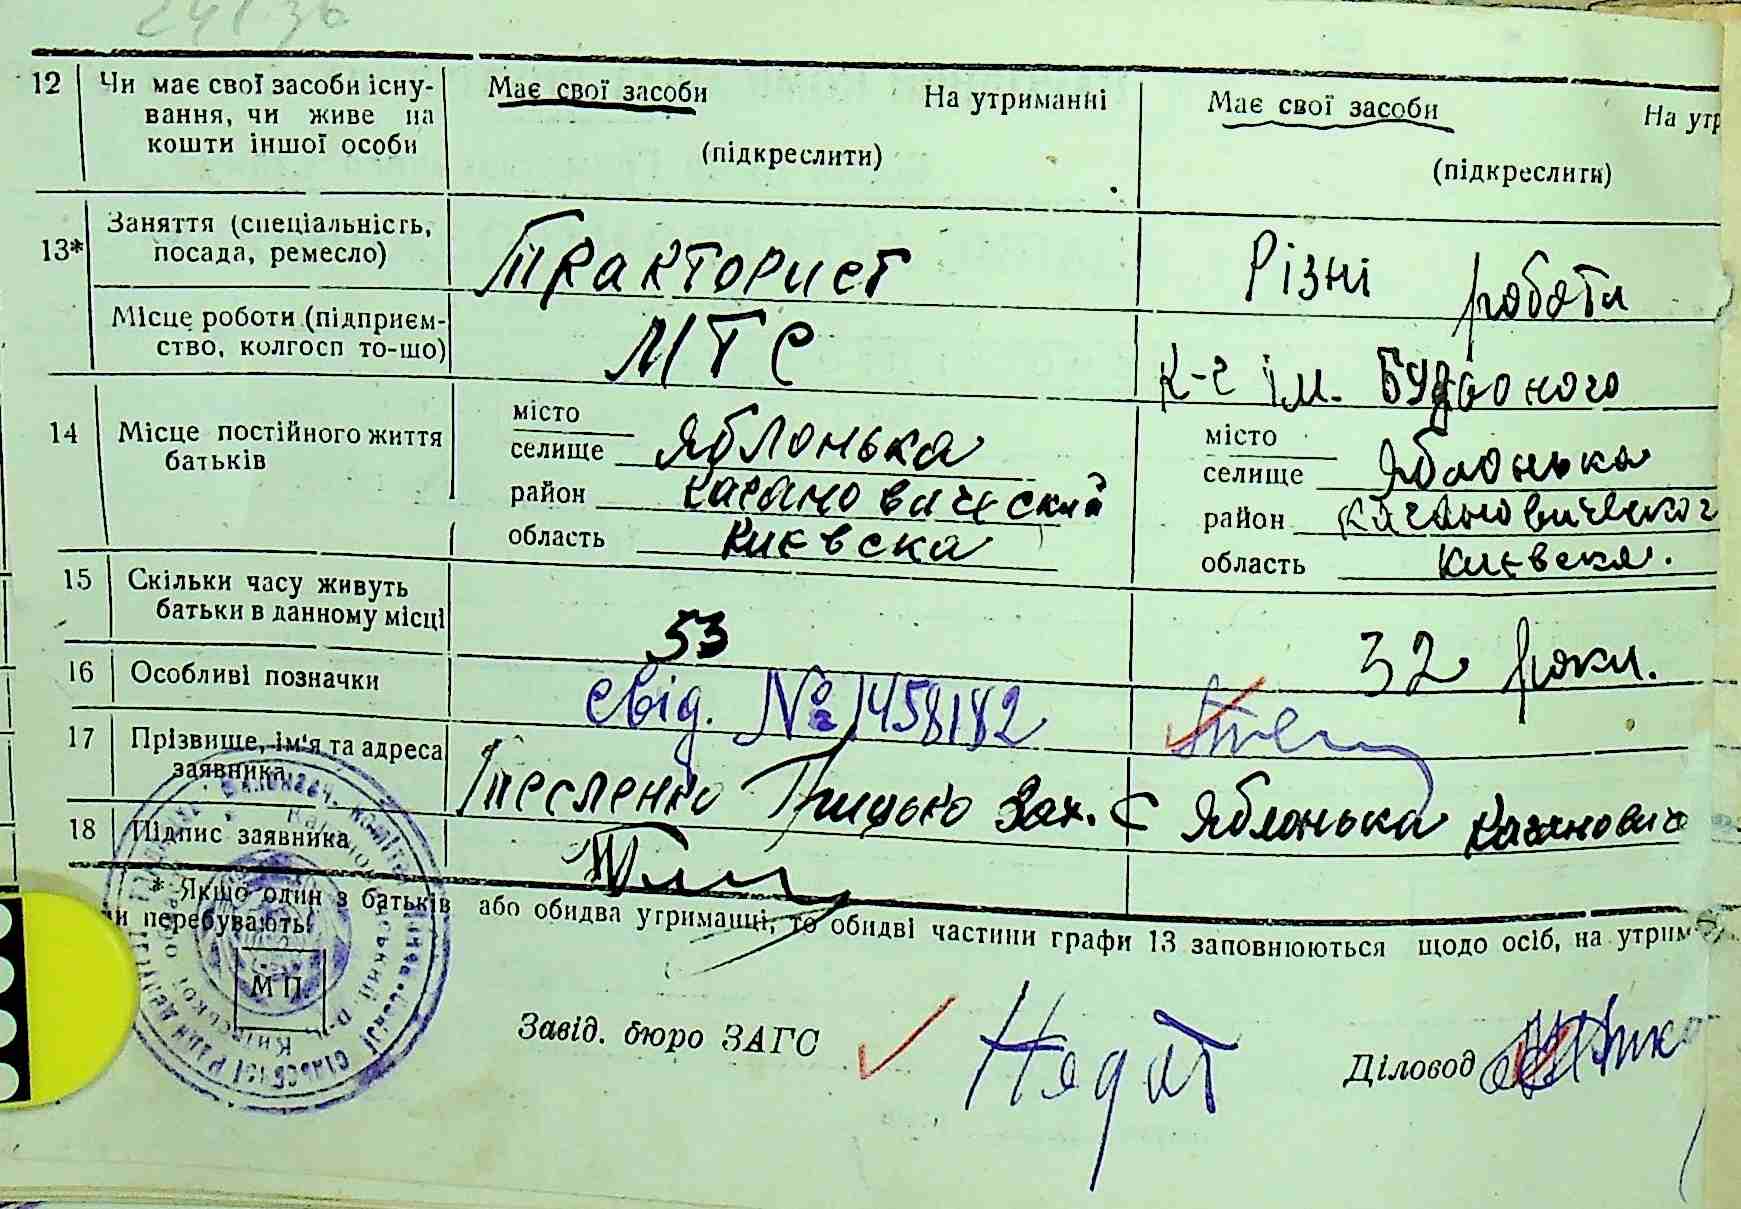 12 Чи має свої засоби існу- Має свої засоби На утриманні Має свої засоби На утр
вання, чи живе на
кошти іншої особи (підкреслити) (підкреслити)
13* Заняття (спеціальність, Тракторист Різні роботи
посада, ремесло)
Місце роботи (підприєм- МТС К-г ім. Будьоного
ство, колгосп то-що)
14 Місце постійного життя місто місто
батьків селище Яблонька селище Яблонька
район Кагановичский район Кагановического
область Києвска область Києвска.
15 Скільки часу живуть 53 32 роки.
батьки в данному місці
16 Особливі позначки свід. № 1458182
17 Прізвище, ім'я та адреса Тесленко Грицько Зах. С Яблонька Каганович
заявника
18 Підпис заявника
* Якщо один з батьків або обидва утриманці, то обидві частини графи 13 заповнюються щодо осіб, на утрим
ни перебувають.
М П.
Завід. бюро ЗАГС Діловод